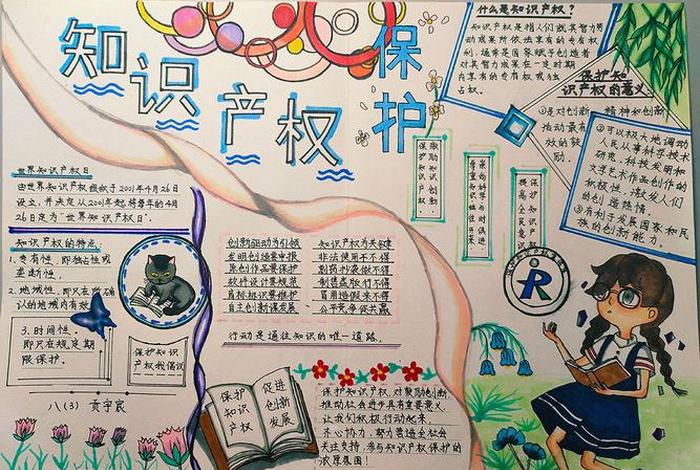 知识产权保护
什么是知识产权？
知识产权是指人们就其智力劳
动成果所依法享有的专有权
利，通常是国家赋予创造者
对其智力成果在一定时期
内享有的专有权或独
占权。
保护知
识产权的意义
①是对创新
活动最有
效的鼓
励。
精神和创新
②可以极大地调动
人民从事科学技术
研究、科技发明和
文学艺术作品创作的
积极性，激发人们
的创造能力。
③有利于发展国家和民
族的创新能力。
鼓励知识创新
保护知识产权
保护知识产权
提高全民意识
世界知识产权日
由世界知识产权组织于2001年4月26日
设立，并决定从2001年起将每年的4月
26日定为“世界知识产权日”。
知识产权的特点
1、专有性，即独占性或
垄断性。
2、地域性，即只在所确
认的地域内有效
3、时间性，
即只在规定期
限保护。
保护知识
产权我倡议
八(3) 贡宇宸
创新驱动为引领
发明创造要申报
原创作品要保护
软件设计要规范
商标标识要维护
自主创新谋发展
知识产权为关键
非法使用不不得
制售盗版行不得
冒用造假来不得
公平竞争促共赢
行动是通往知识的唯一道路。
保护
知识
产权
促进
创新
发展
保护知识产权，对鼓励创新
推动社会进步具有重要意义
让我们积极行动起来，
齐心协力，努力营造全社会
关注支持，参与知识产权保护的
浓厚氛围！
R